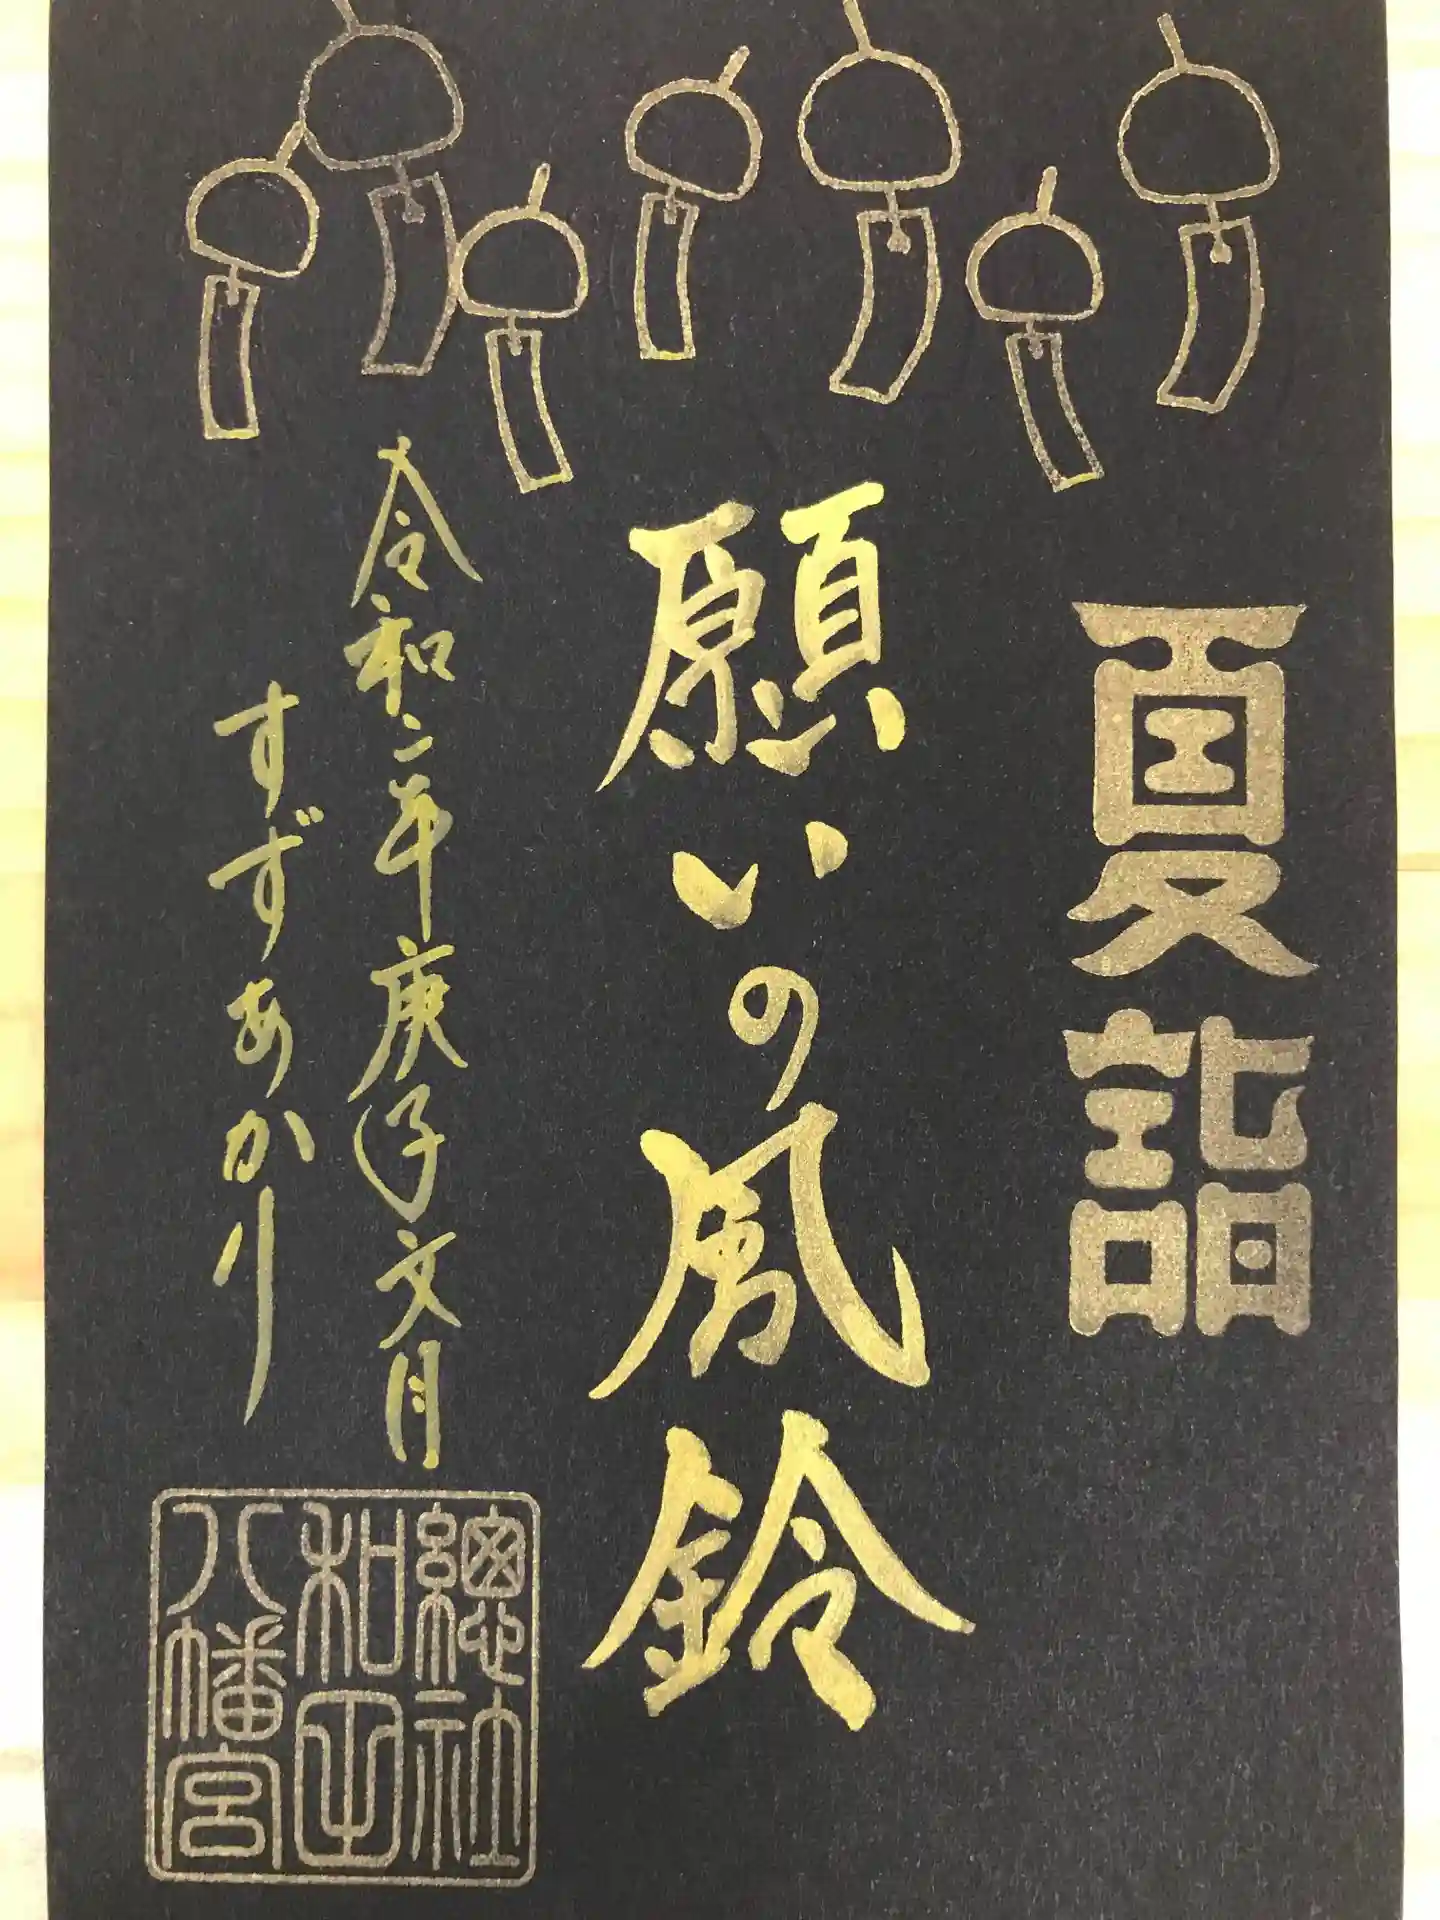 夏詣
願いの風鈴
令和二年庚子文月
すずあかり
總社
和田
八幡宮